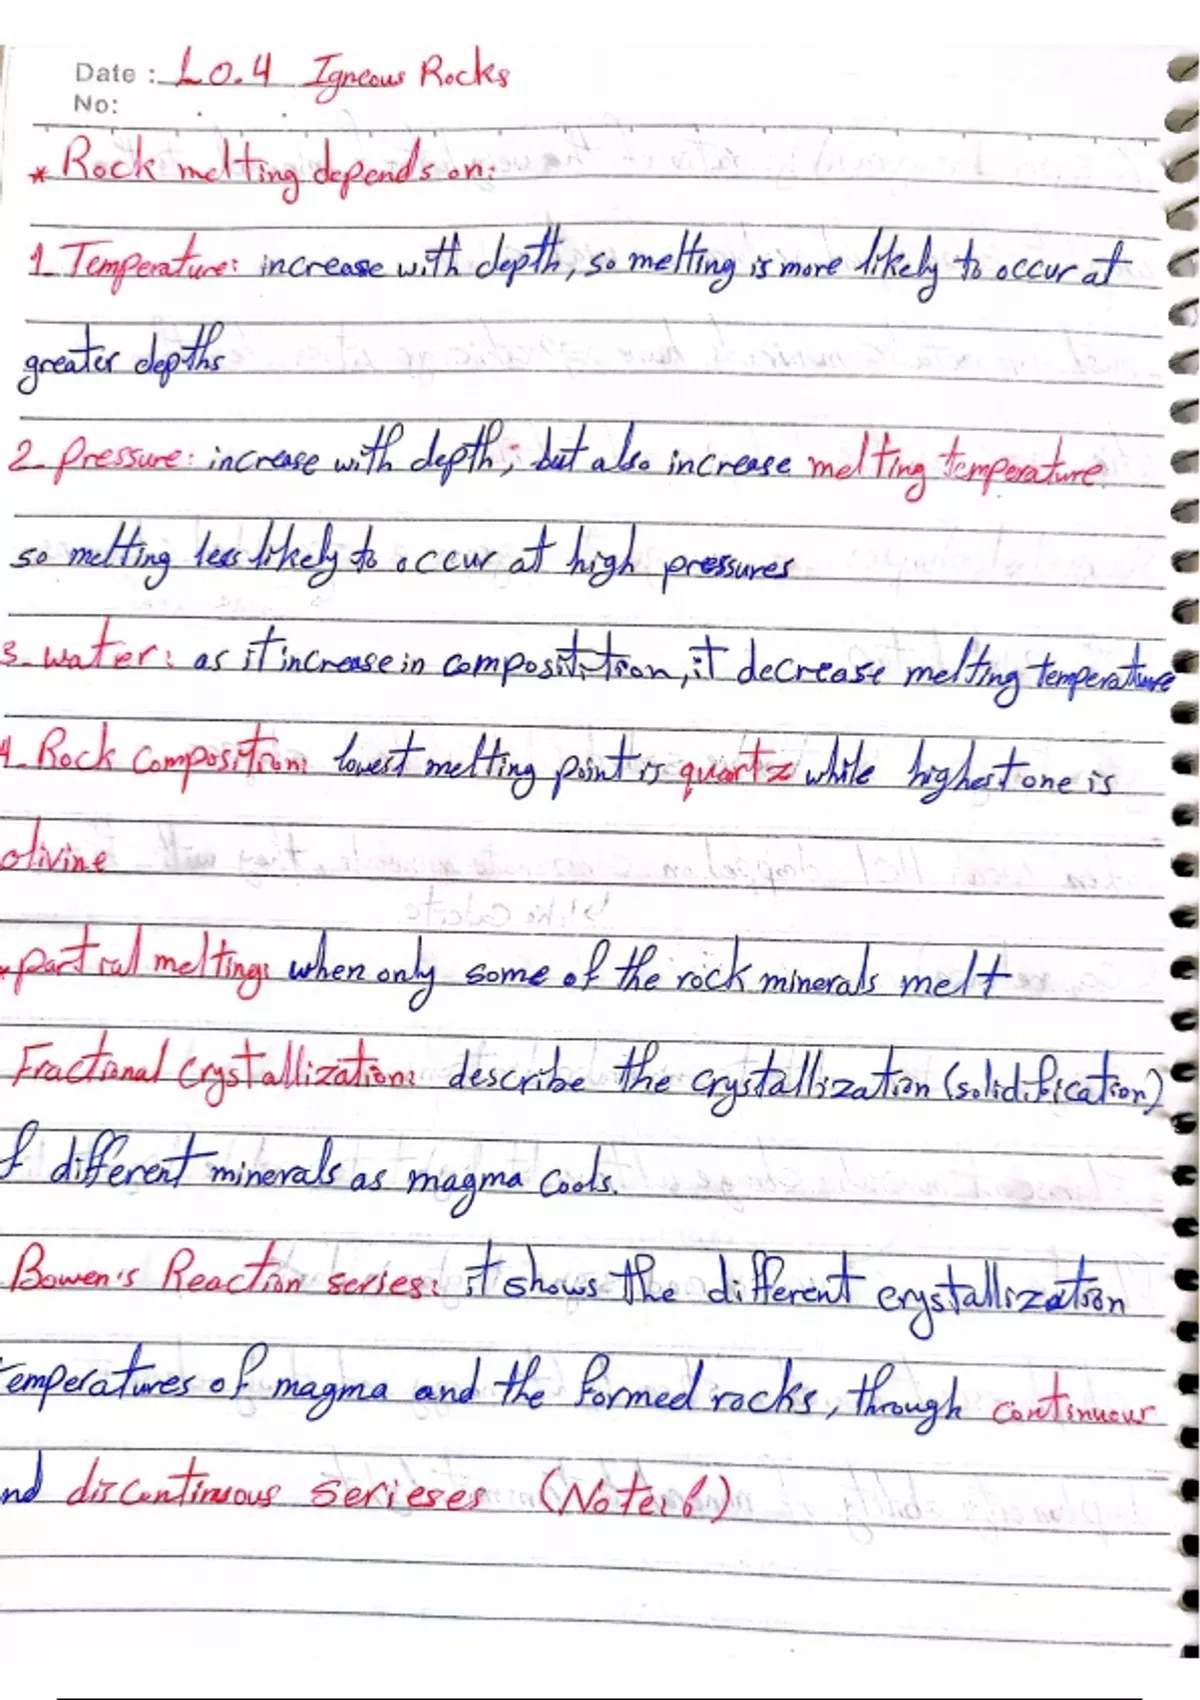 Date : LO.4 Igneous Rocks
No:
* Rock melting depends on:
1_ Temperature: increase with depth, so melting is more likely to occur at
greater depths
2_ pressure: increase with depth, but also increase melting temperature.
so melting less likely to occur at high pressures
3_ water: as it increase in compositition, it decrease melting temperature
4_ Rock composition: lowest melting point is quartz while highest one is
olivine
* partial melting: when only some of the rock minerals melt
Fractional Crystallization: describe the crystallization (solidification)
of different minerals as magma cools.
Bowen's Reaction series: it shows the different crystallization
temperatures of magma and the formed rocks, through continuour
nd discontinuous serieses (Note:6)